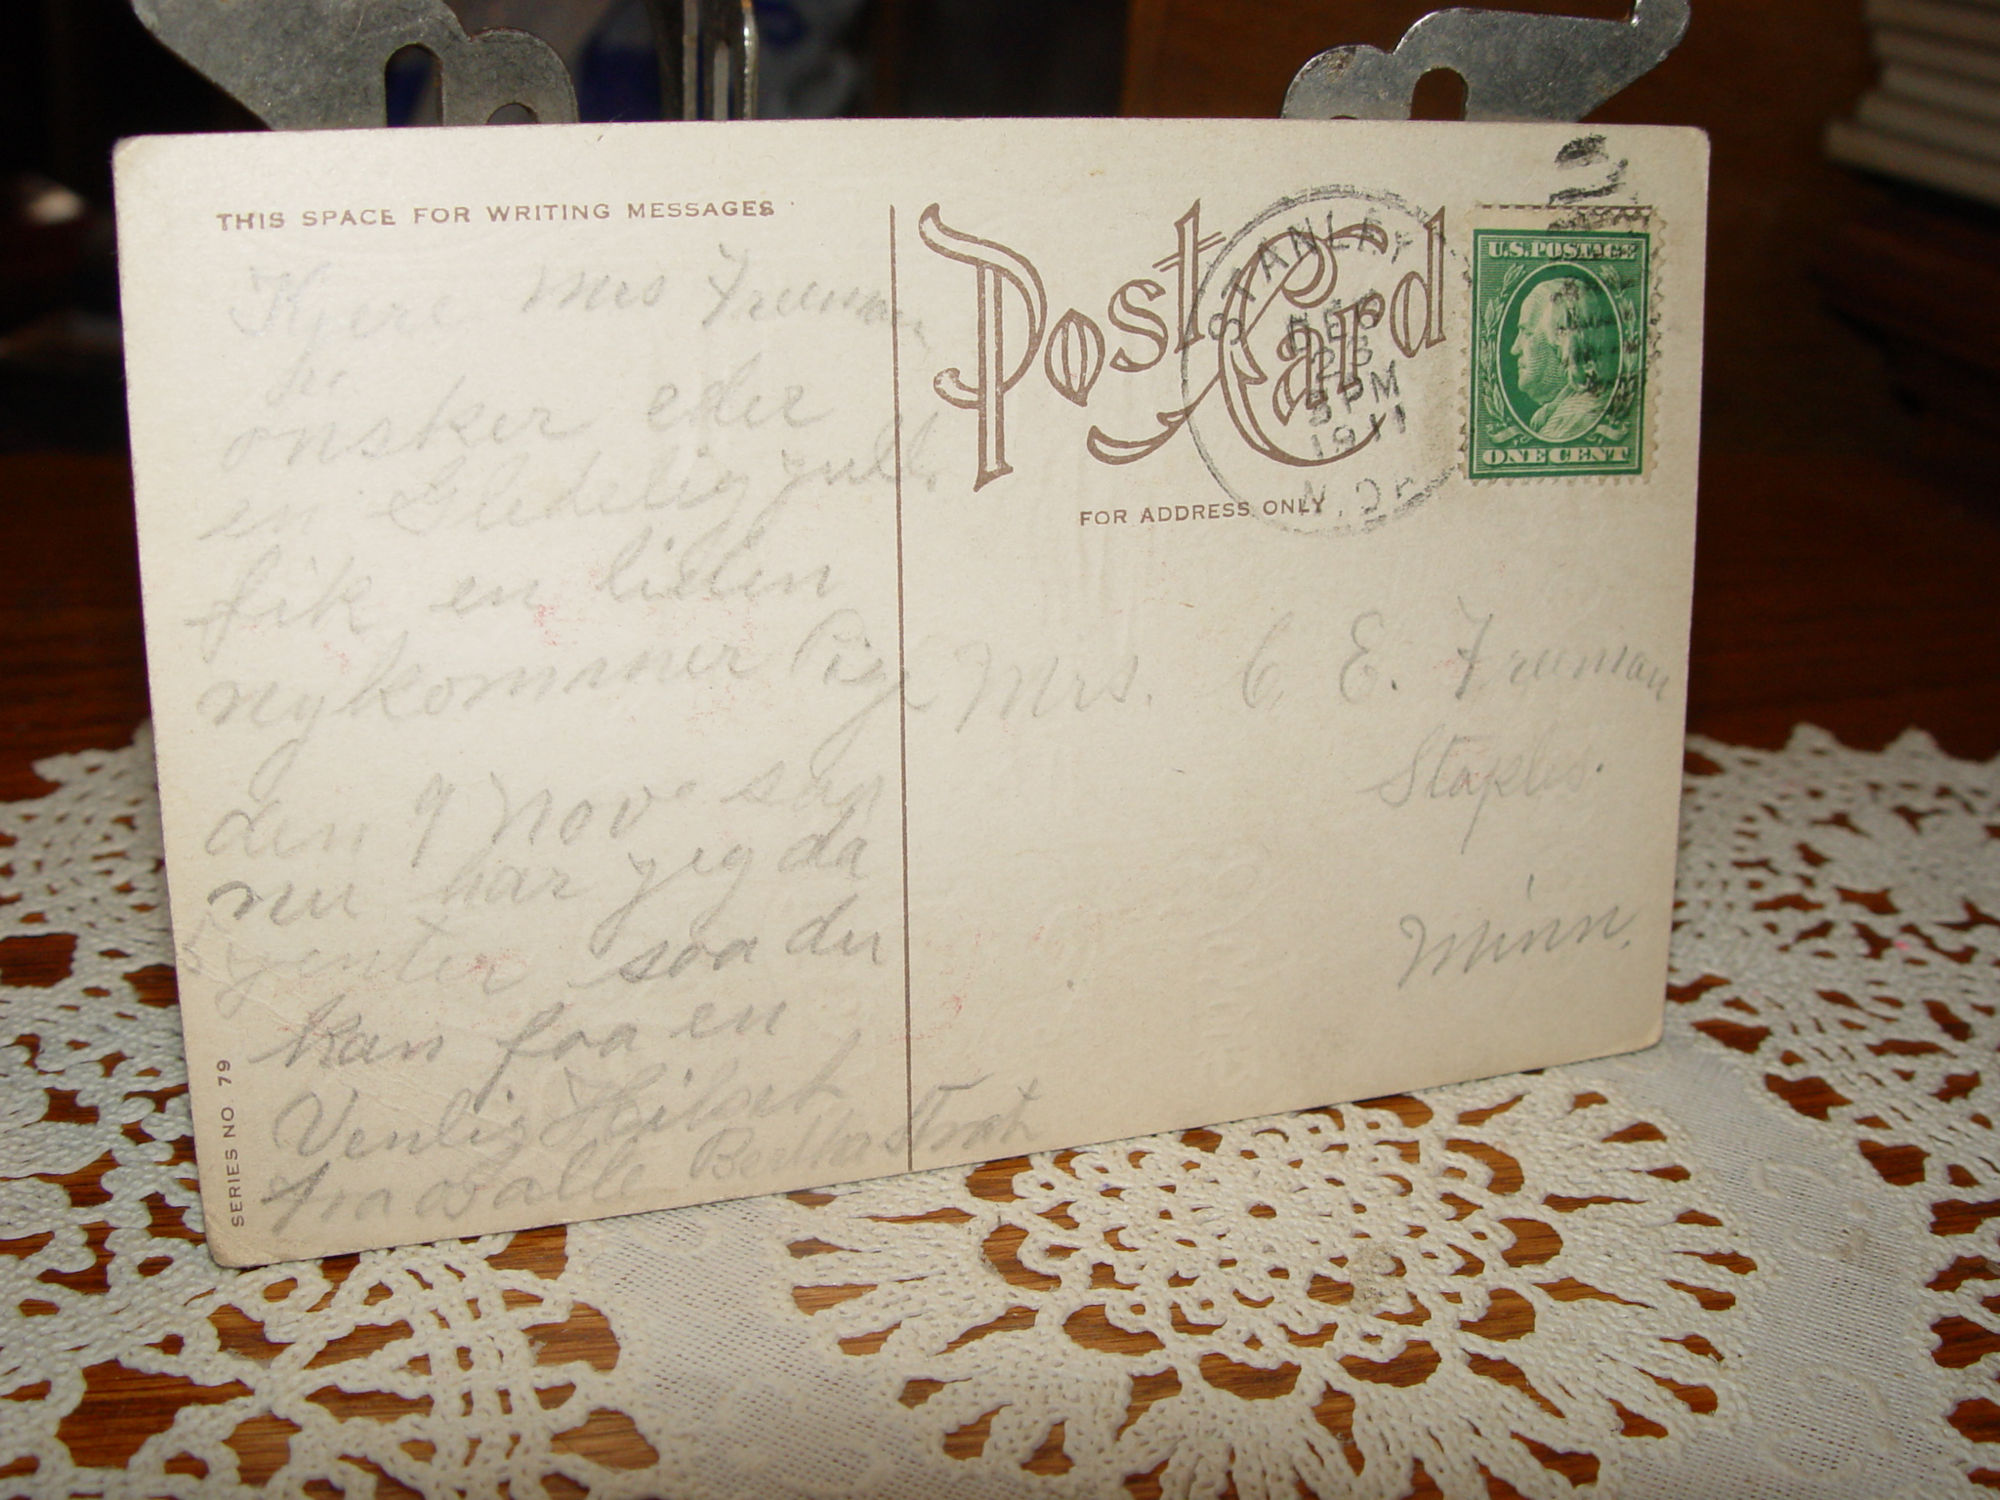 THIS SPACE FOR WRITING MESSAGES
Kjere Mrs Freeman
onsker eder
en Gledelig jull
fik en liden
nykommer Pige
den 9 Nov saa
nu har jeg da
5 jenter saa du
kan faa en
Venlig Hilsen
fra os alle Bertha
SERIES NO. 79
Post Card
FOR ADDRESS ONLY
STANLEY
DEC
23
5 PM
1911
N. DA
U.S. POSTAGE
ONE CENT
Mrs. C E. Freeman
Staples.
Minn.